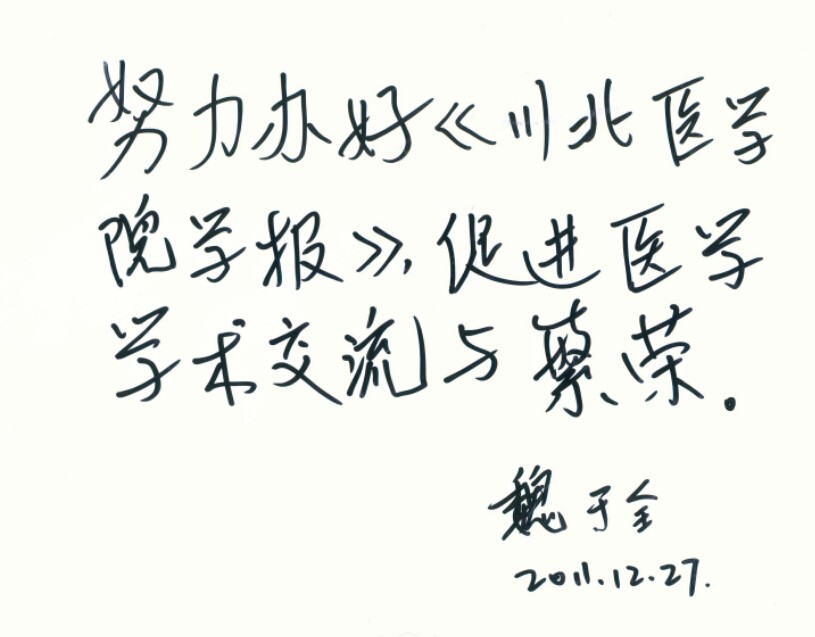 努力办好《川北医学
院学报》，促进医学
学术交流与繁荣.
魏于全
2011.12.27.